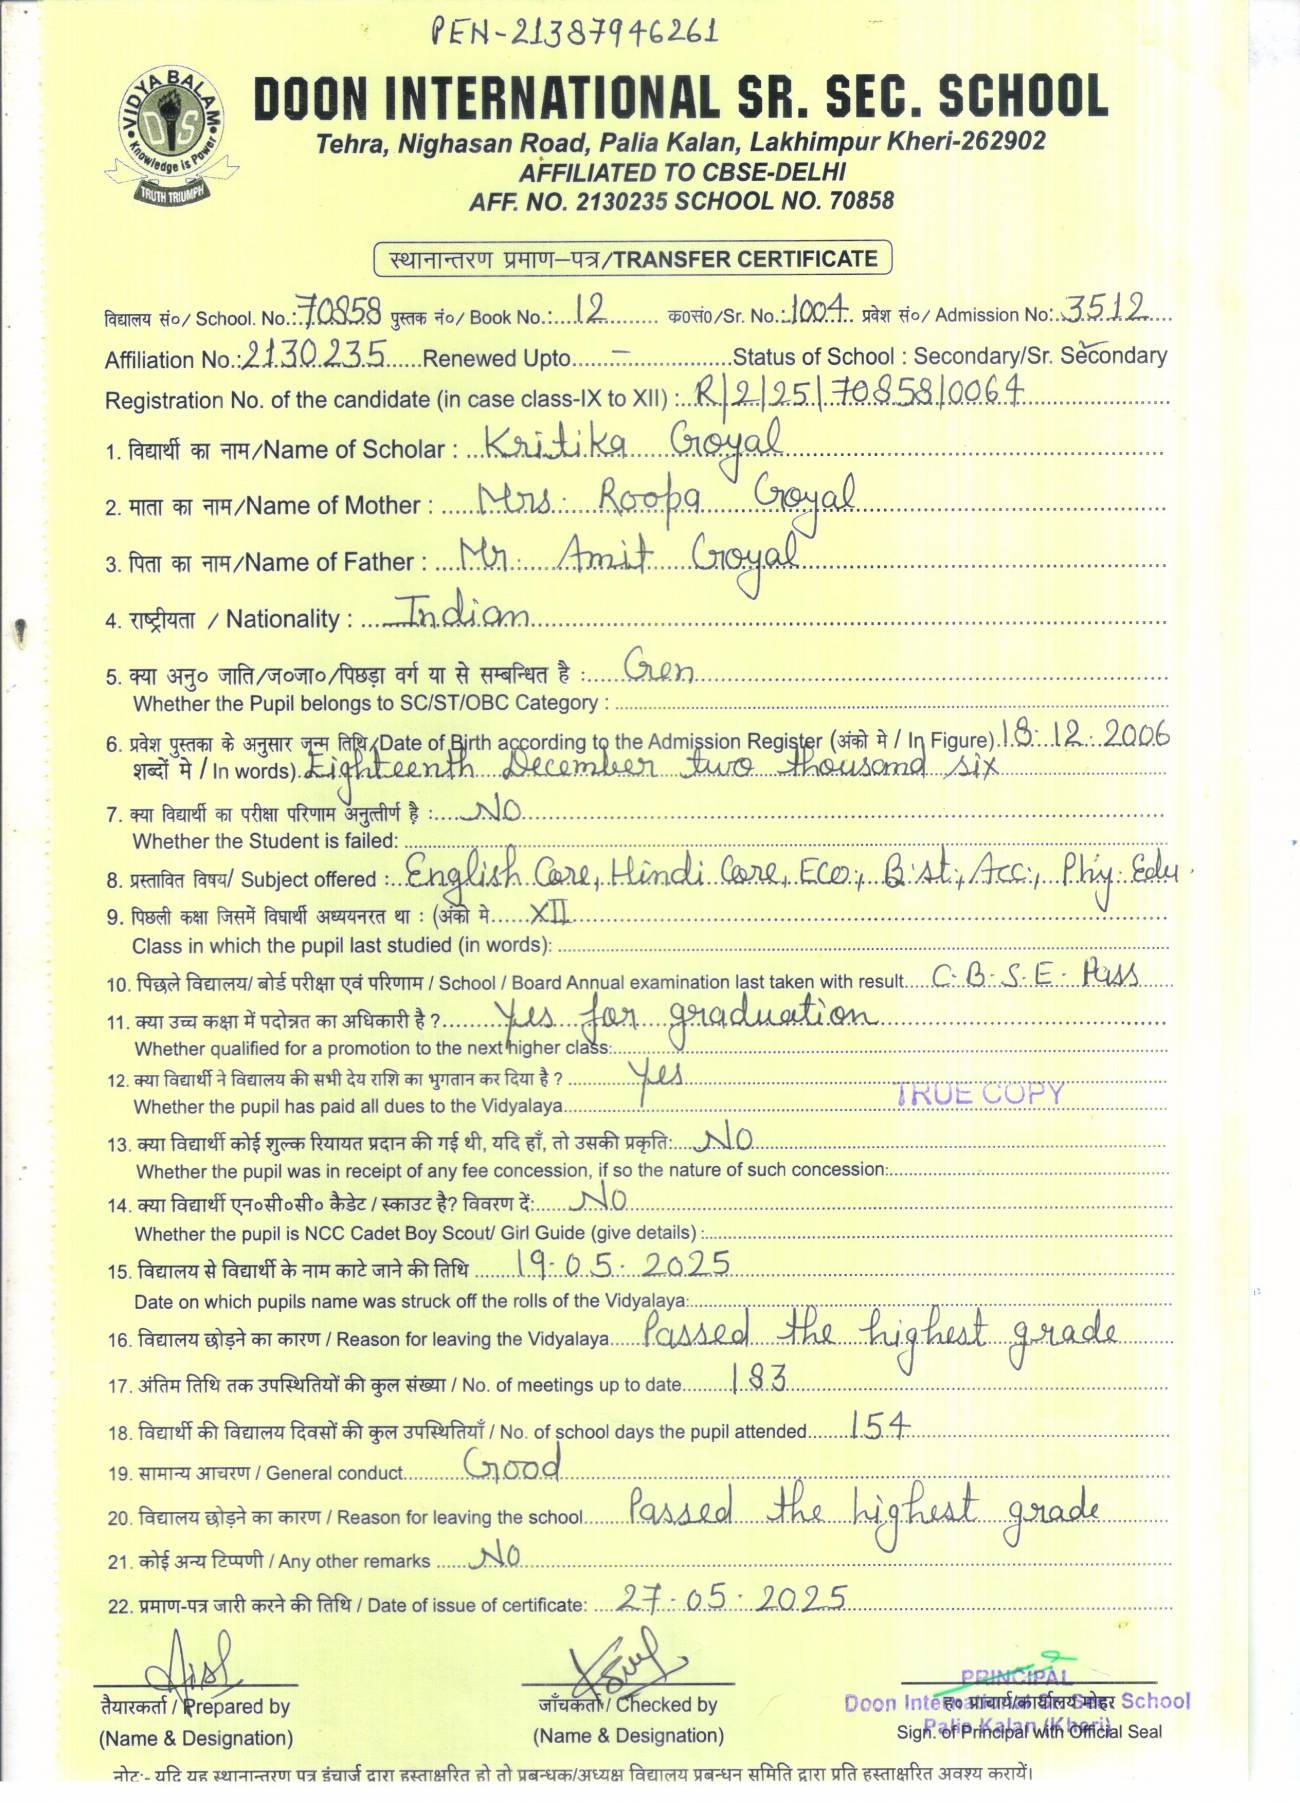 PEN-21387946261
VIDYA BALAM
DIS
Knowledge is Power
TRUTH TRIUMPH
DOON INTERNATIONAL SR. SEC. SCHOOL
Tehra, Nighasan Road, Palia Kalan, Lakhimpur Kheri-262902
AFFILIATED TO CBSE-DELHI
AFF. NO. 2130235 SCHOOL NO. 70858
स्थानान्तरण प्रमाण–पत्र/TRANSFER CERTIFICATE
विद्यालय सं०/ School. No.: 70858 पुस्तक नं०/ Book No.: 12 क0सं0/Sr. No.: 1004 प्रवेश सं०/ Admission No: 3512
Affiliation No.: 2130235 Renewed Upto – Status of School : Secondary/Sr. Secondary
Registration No. of the candidate (in case class-IX to XII) : R/2/25/70858/0064
1. विद्यार्थी का नाम/Name of Scholar : Kritika Goyal
2. माता का नाम/Name of Mother : Mrs. Roopa Goyal
3. पिता का नाम/Name of Father : Mr. Amit Goyal
4. राष्ट्रीयता / Nationality : Indian
5. क्या अनु० जाति/ज०जा०/पिछड़ा वर्ग या से सम्बन्धित है : Gen
Whether the Pupil belongs to SC/ST/OBC Category :
6. प्रवेश पुस्तका के अनुसार जून्म तिथि/Date of Birth according to the Admission Register (अंको मे / In Figure) 18.12.2006
शब्दों मे / In words) Eighteenth December two thousand six
7. क्या विद्यार्थी का परीक्षा परिणाम अनुत्तीर्ण है : NO
Whether the Student is failed:
8. प्रस्तावित विषय/ Subject offered : English Core, Hindi Core, Eco., B.st., Acc., Phy. Edu.
9. पिछली कक्षा जिसमें विघार्थी अध्ययनरत था : (अंको मे XII
Class in which the pupil last studied (in words):
10. पिछले विद्यालय/ बोर्ड परीक्षा एवं परिणाम / School / Board Annual examination last taken with result C.B.S.E. Pass
11. क्या उच्च कक्षा में पदोन्नत का अधिकारी है ? Yes for graduation
Whether qualified for a promotion to the next higher class:
12. क्या विद्यार्थी ने विद्यालय की सभी देय राशि का भुगतान कर दिया है ? Yes
Whether the pupil has paid all dues to the Vidyalaya
TRUE COPY
13. क्या विद्यार्थी कोई शुल्क रियायत प्रदान की गई थी, यदि हाँ, तो उसकी प्रकृति: NO
Whether the pupil was in receipt of any fee concession, if so the nature of such concession:
14. क्या विद्यार्थी एन०सी०सी० कैडेट / स्काउट है? विवरण दें: NO
Whether the pupil is NCC Cadet Boy Scout/ Girl Guide (give details) :
15. विद्यालय से विद्यार्थी के नाम काटे जाने की तिथि 19.05.2025
Date on which pupils name was struck off the rolls of the Vidyalaya:
16. विद्यालय छोड़ने का कारण / Reason for leaving the Vidyalaya Passed the highest grade
17. अंतिम तिथि तक उपस्थितियों की कुल संख्या / No. of meetings up to date 183
18. विद्यार्थी की विद्यालय दिवसों की कुल उपस्थितियाँ / No. of school days the pupil attended 154
19. सामान्य आचरण / General conduct Good
20. विद्यालय छोड़ने का कारण / Reason for leaving the school Passed the highest grade
21. कोई अन्य टिप्पणी / Any other remarks NO
22. प्रमाण-पत्र जारी करने की तिथि / Date of issue of certificate: 27.05.2025
PRINCIPAL
तैयारकर्ता / Prepared by जाँचकर्ता / Checked by ह० प्राचार्य/कार्यालय मोहर
Doon School
(Name & Designation) (Name & Designation) Sign. of Principal with Official Seal
Palia Kalan (Kheri)
नोट:- यदि यह स्थानान्तरण पत्र इंचार्ज द्वारा हस्ताक्षरित हो तो प्रबन्धक/अध्यक्ष विद्यालय प्रबन्धन समिति द्वारा प्रति हस्ताक्षरित अवश्य करायें।